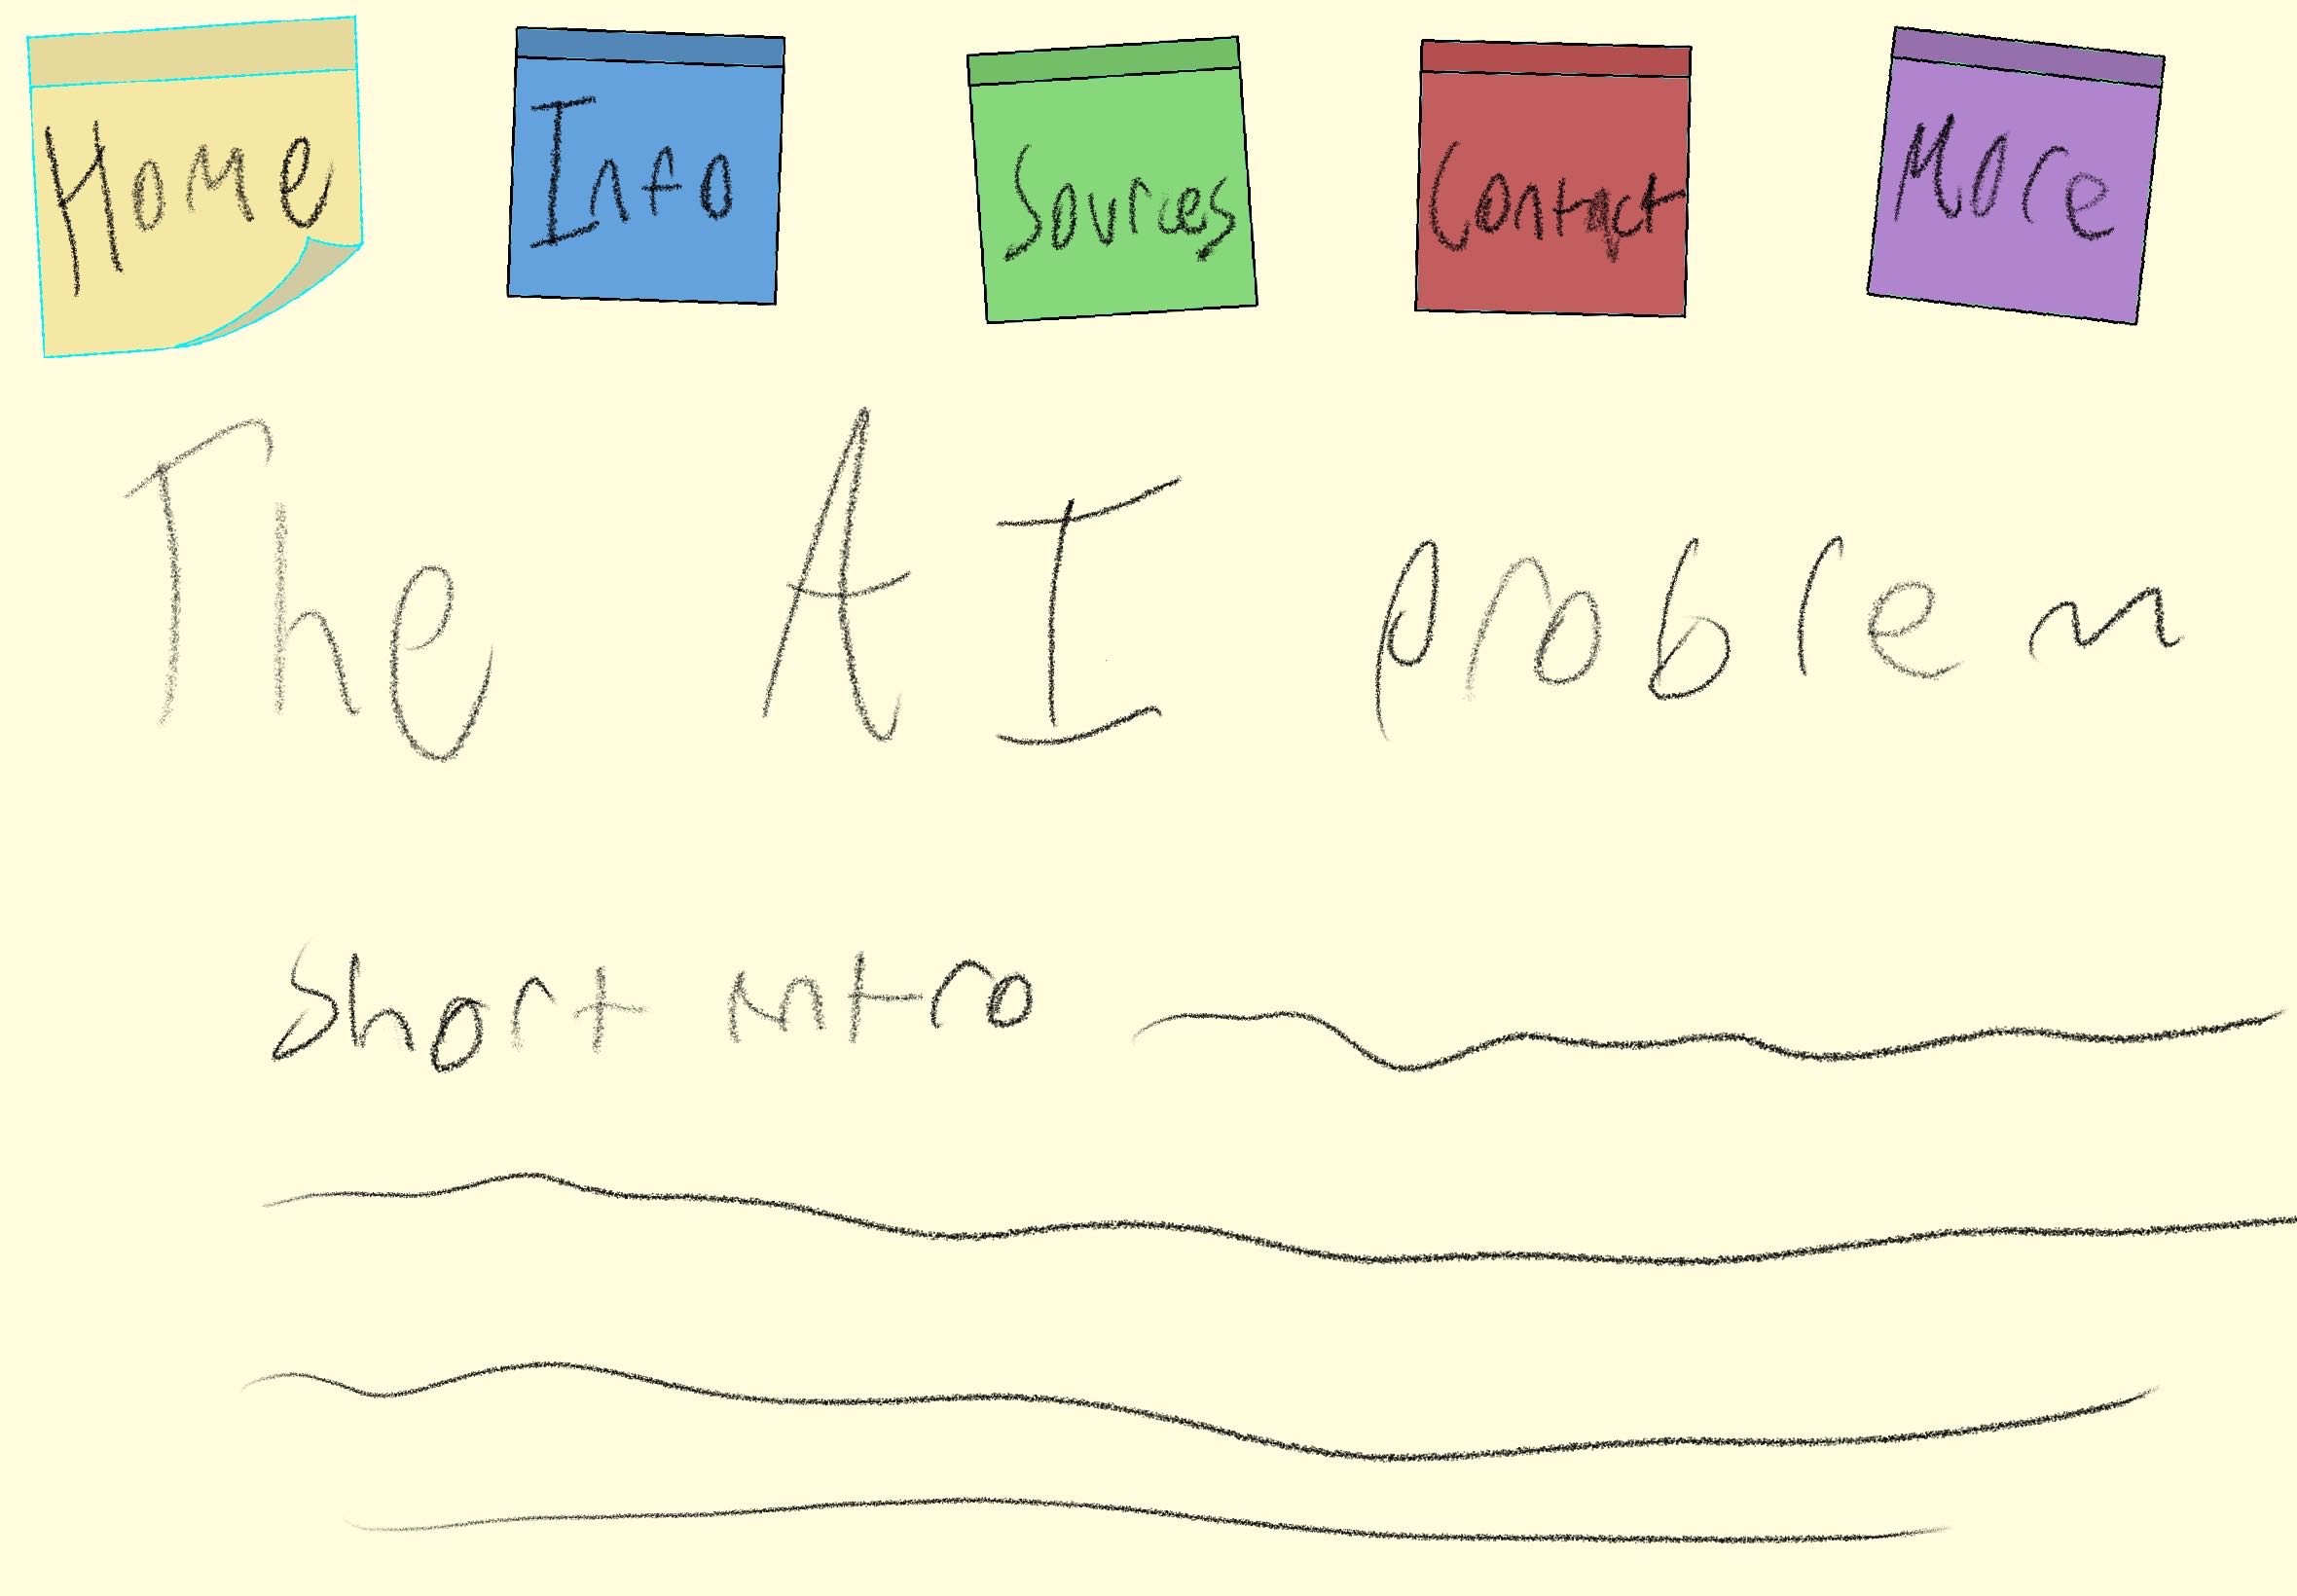 Home Info Sources Contact More
The AI problem
Short intro